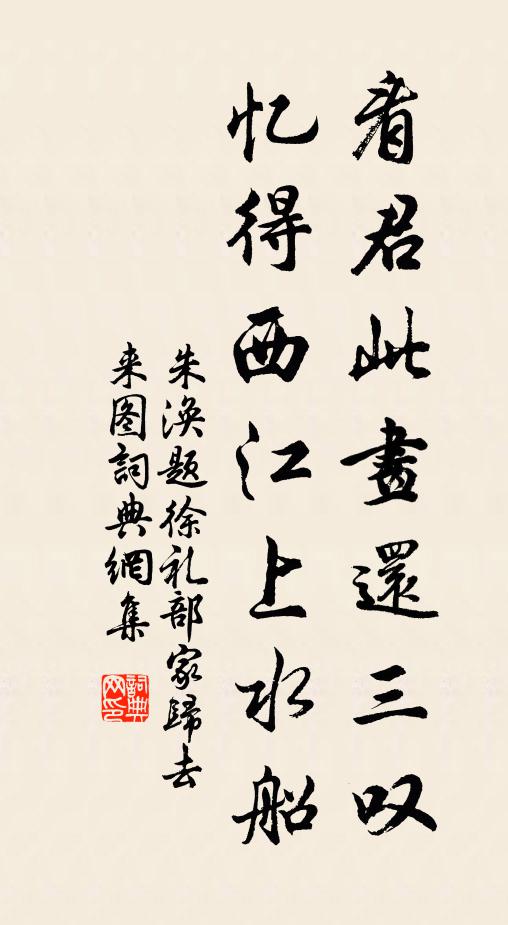 看君此畫還三叹
忆得西江上水船
朱涣题徐礼部家歸去
来图詞典網集
詞典网印